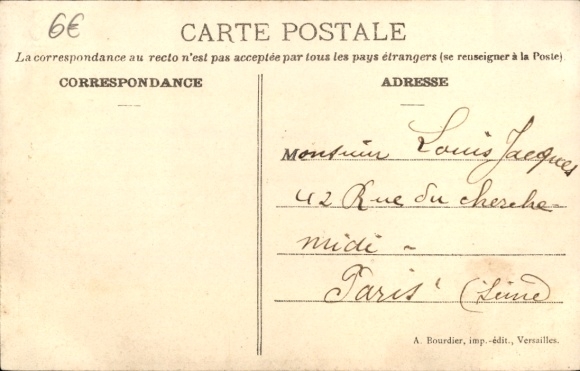 6€
CARTE POSTALE
La correspondance au recto n'est pas acceptée par tous les pays étrangers (se renseigner à la Poste)
CORRESPONDANCE
ADRESSE
Monsieur Louis Jacques
42 Rue du cherche-
midi -
Paris (Seine)
A. Bourdier, imp.-édit., Versailles.